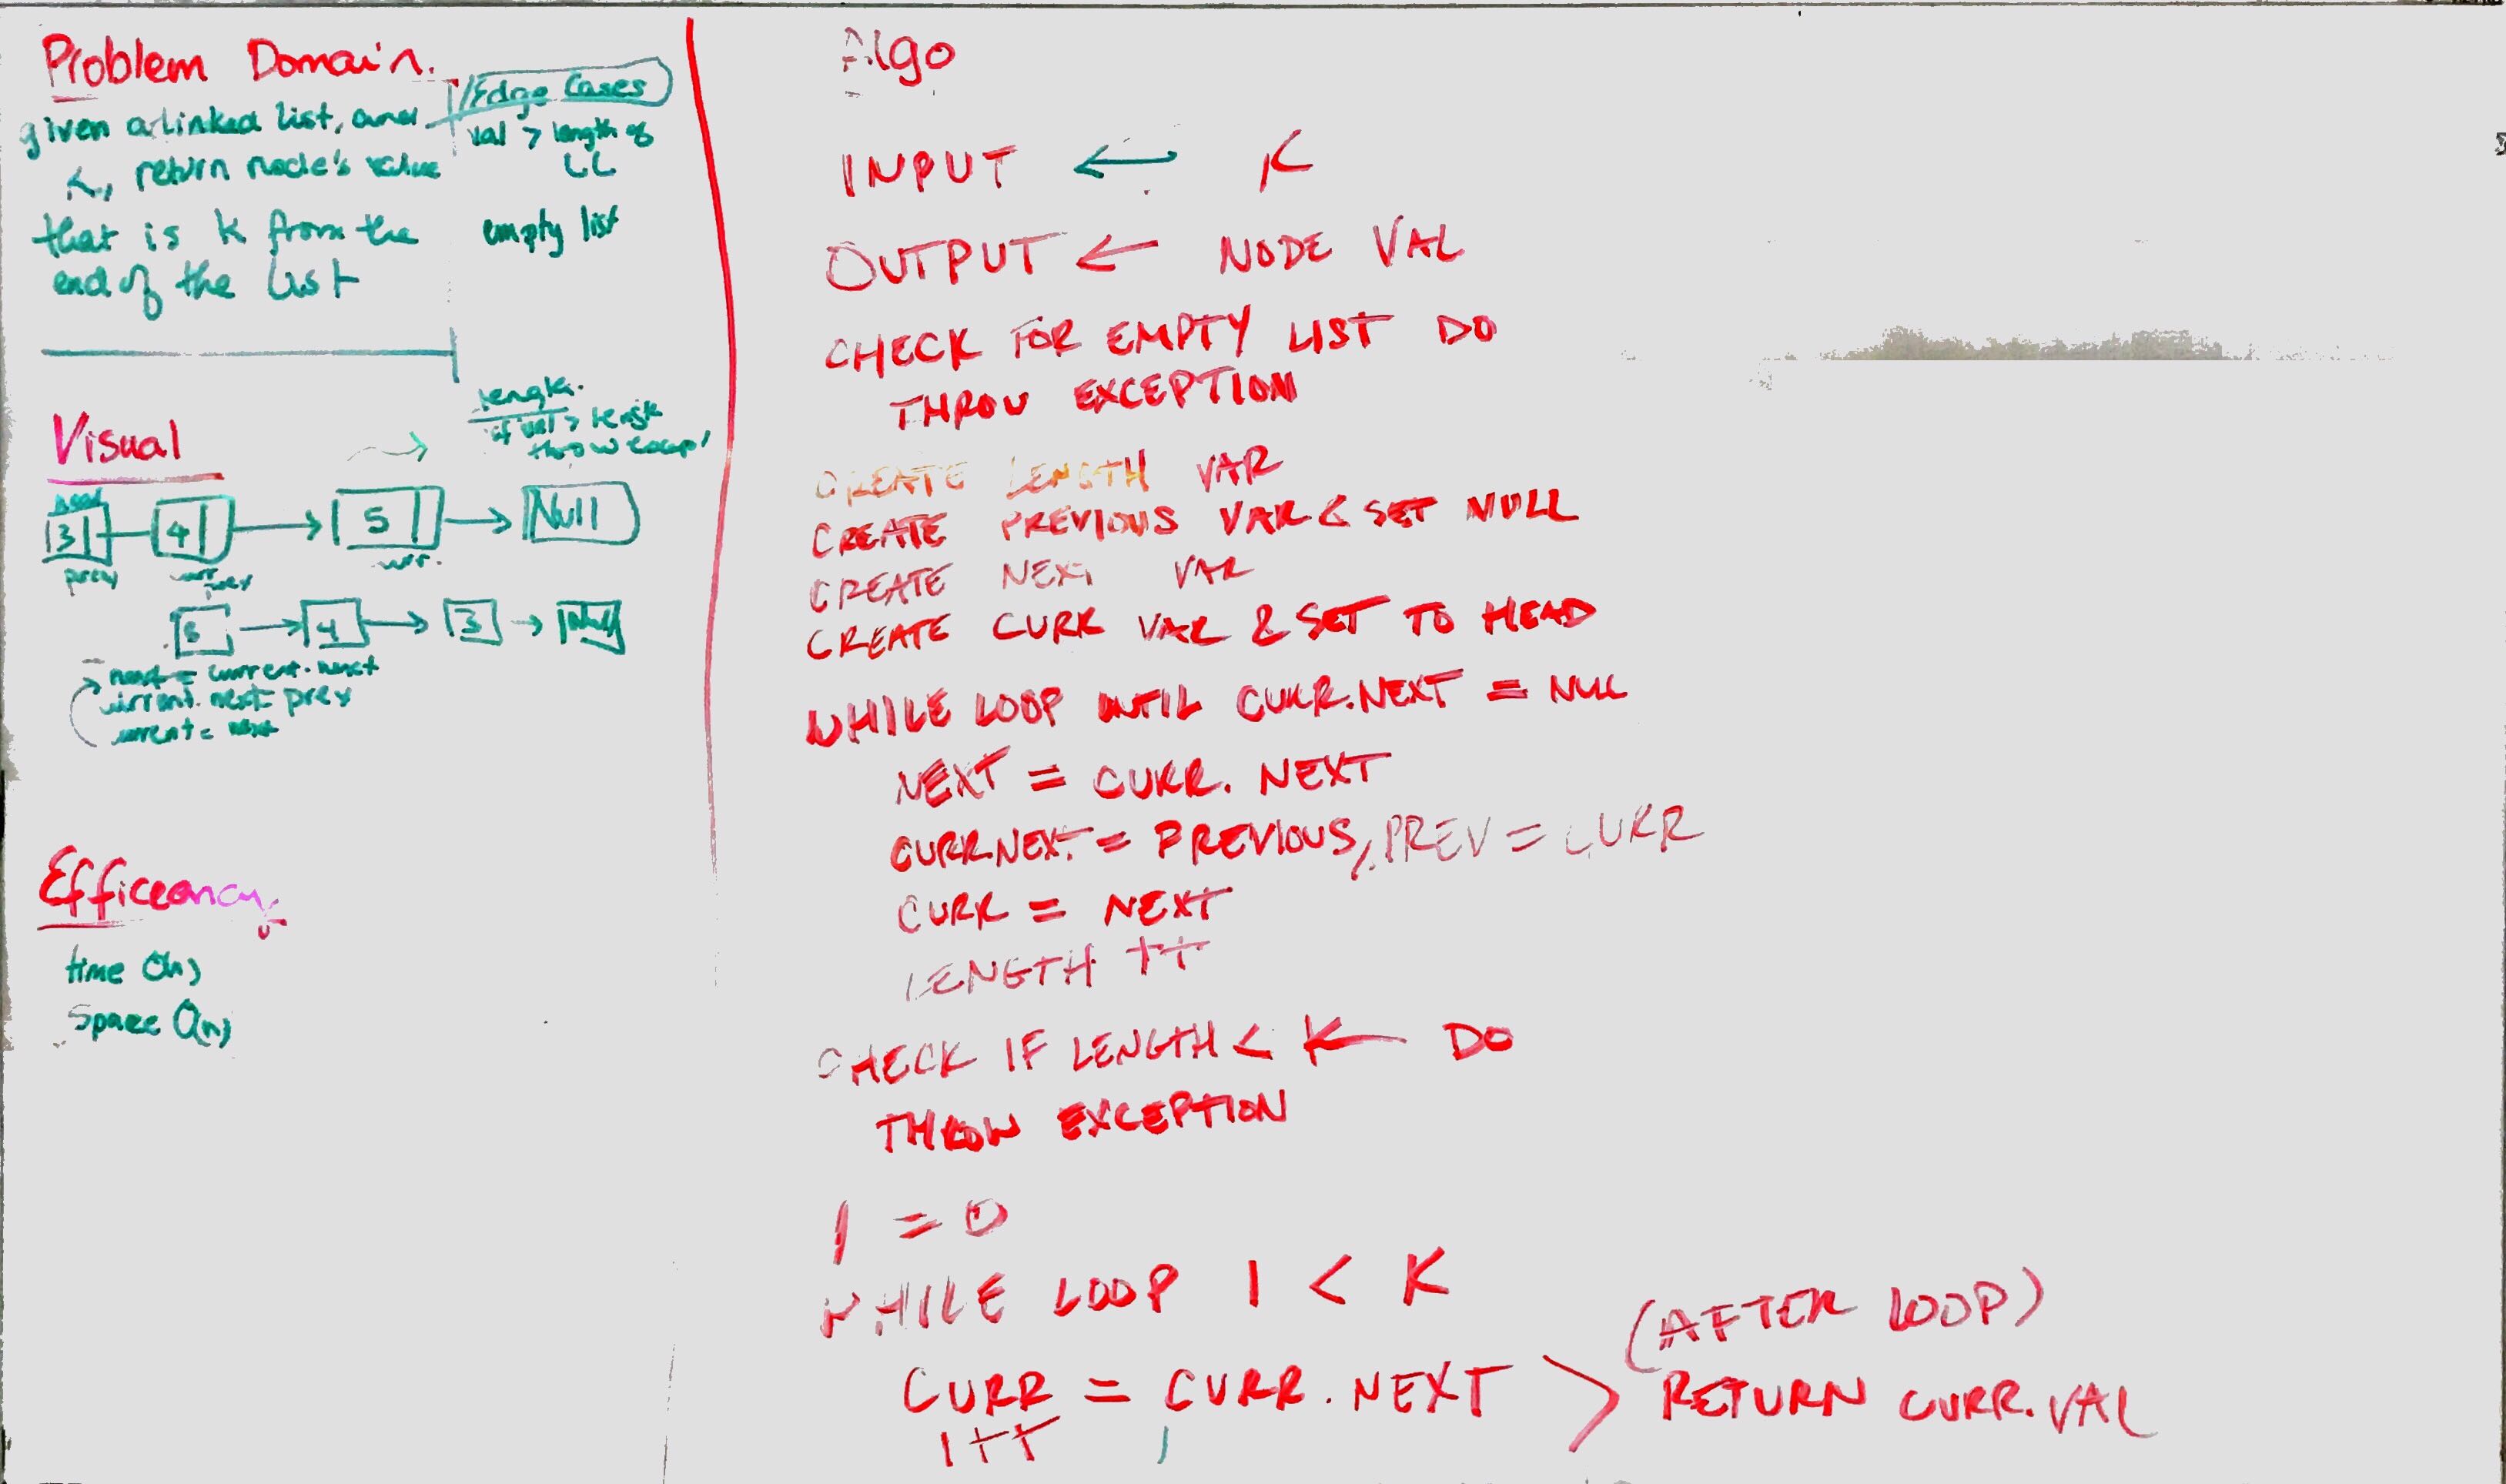 Problem Domain.
given a linked list, and
K, return node's value
that is k from the
end of the list
Edge Cases
val > length of
LL
empty list
Visual
length.
if val > length
throw excep
head
3 4 5 Null
prev curr curr.
prev
4 3 Null
next = current.next
current.next = prev
current = next
Efficeancy
time O(n)
Space O(n)
Algo
INPUT ← K
OUTPUT ← NODE VAL
CHECK FOR EMPTY LIST DO
THROW EXCEPTION
CREATE LENGTH VAR
CREATE PREVIOUS VAR & SET NULL
CREATE NEXT VAR
CREATE CURR VAR & SET TO HEAD
WHILE LOOP UNTIL CURR.NEXT = NULL
NEXT = CURR. NEXT
CURR.NEXT = PREVIOUS, PREV = CURR
CURR = NEXT
LENGTH ++
CHECK IF LENGTH < K DO
THROW EXCEPTION
I = 0
WHILE LOOP I < K
CURR = CURR.NEXT
I++
(AFTER LOOP)
RETURN CURR.VAL